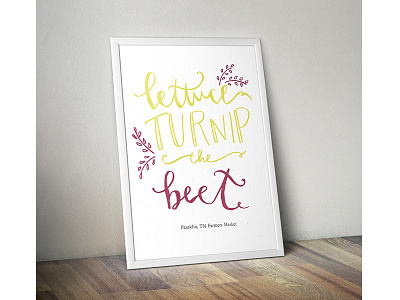 lettuce
TURNIP
the
beet
Franklin, TN Farmers Market